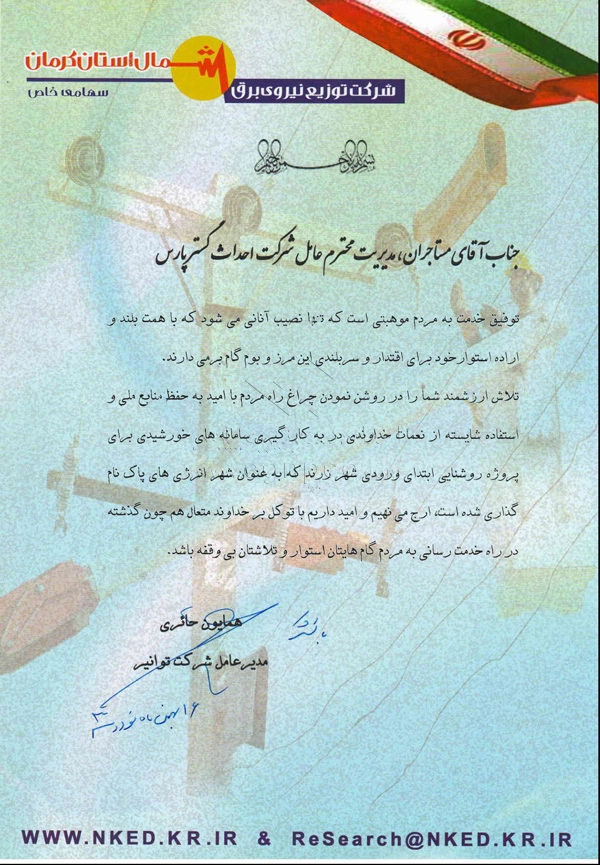 شمال استان کرمان
شرکت توزیع نیروی برق
سهامی خاص
جناب آقای مستاجران، مدیریت محترم عامل شرکت احداث گستر پارس
توفیق خدمت به مردم موهبتی است که تنها نصیب آنانی می شود که با همت بلند و
اراده استوار خود برای اقتدار و سربلندی این مرز و بوم گام برمی دارند.
تلاش ارزشمند شما را در روشن نمودن چراغ راه مردم با امید به حفظ منابع ملی و
استفاده شایسته از نعمات خداوندی در به کار گیری سامانه های خورشیدی برای
پروژه روشنایی ابتدای ورودی شهر زرند که به عنوان شهر انرژی های پاک نام
گذاری شده است، ارج می نهیم و امید داریم با توکل بر خداوند متعال هم چون گذشته
در راه خدمت رسانی به مردم گام هایتان استوار و تلاشتان بی وقفه باشد.
همایون حائری
مدیر عامل شرکت توانیر
WWW.NKED.KR.IR & ReSearch@NKED.KR.IR